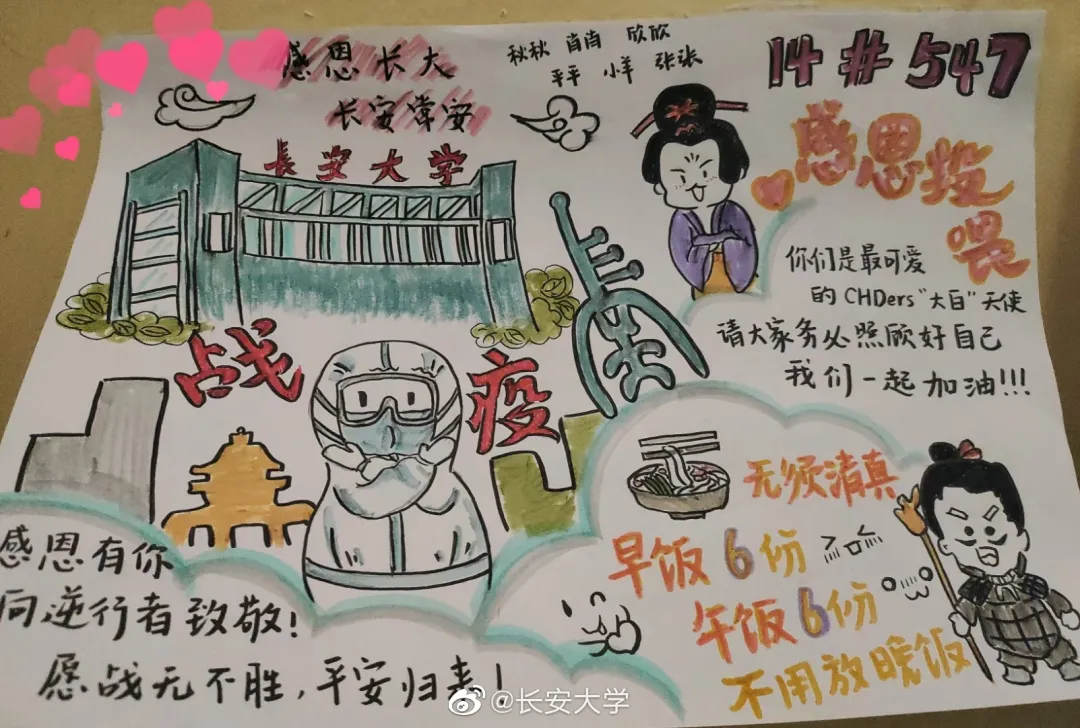 感恩长大
长安常安
秋秋 肖肖 欣欣
平平 小羊 张张
14#547
長安大学
感恩投
喂
你们是最可爱
的CHDers"大白"天使
请大家务必照顾好自己
我们一起加油!!!
战疫
无须清真
早饭6份
午饭6份
不用放晚饭
感恩有你
向逆行者致敬!
愿战无不胜,平安归来!
@长安大学